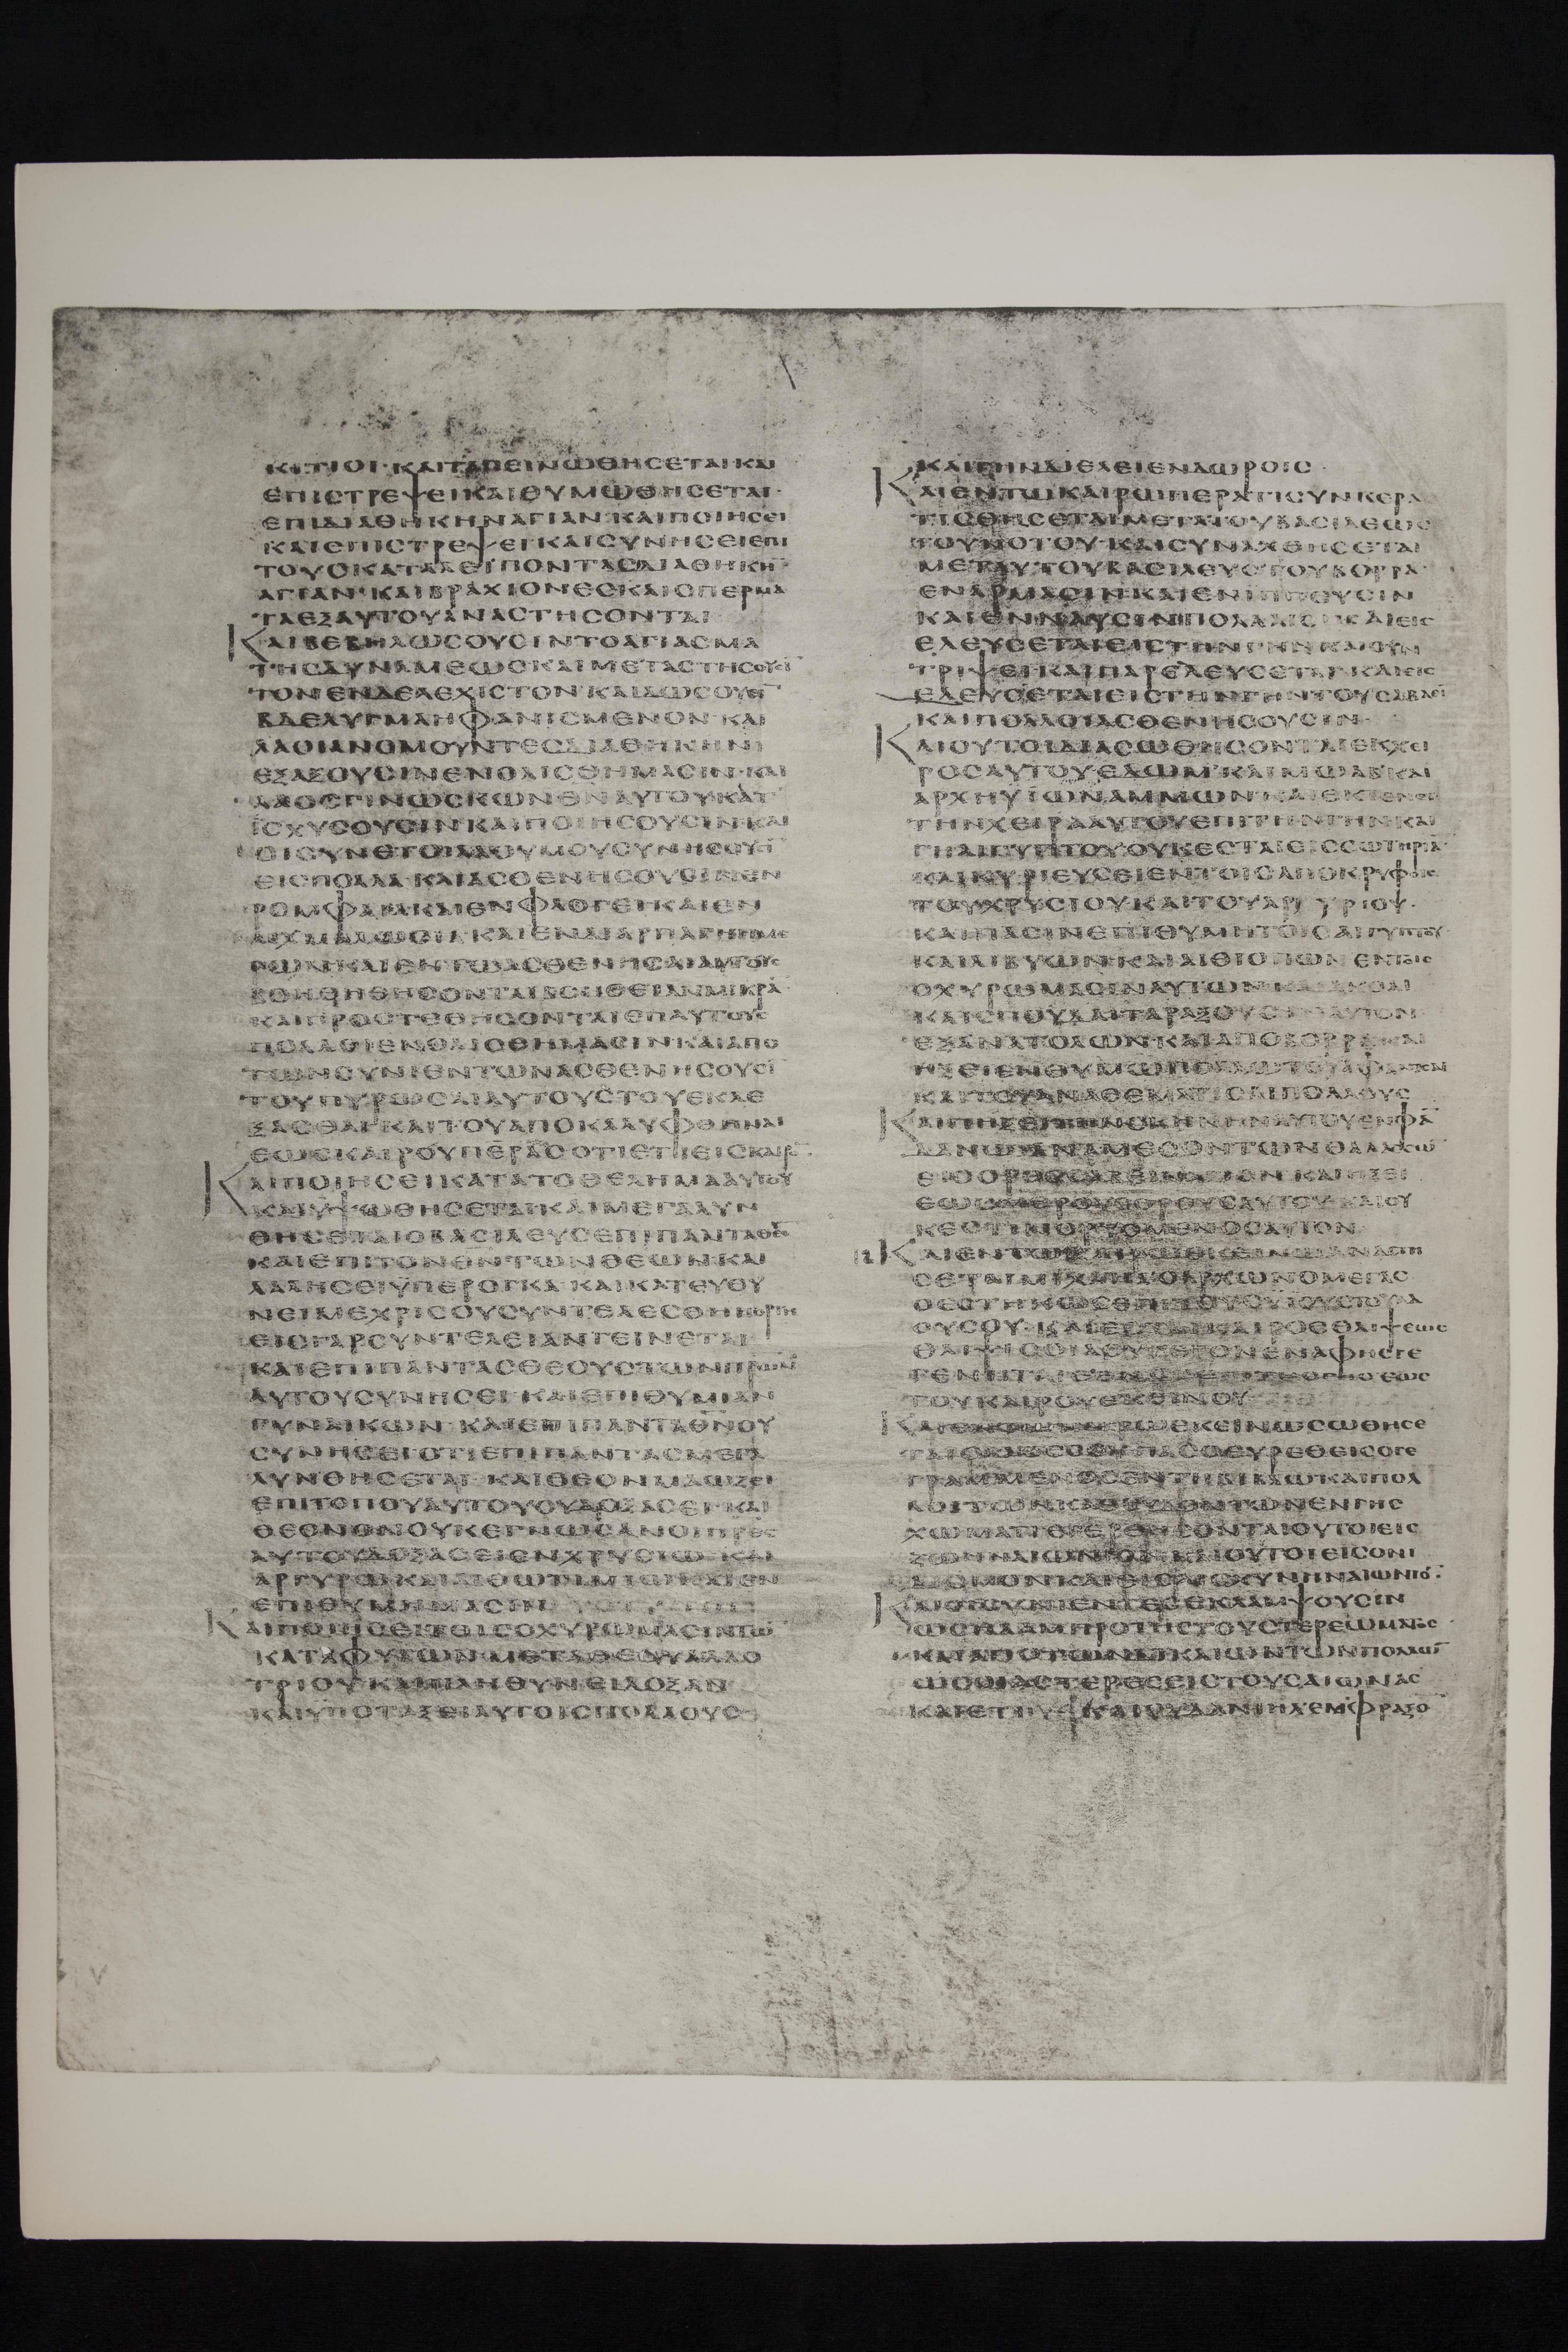 ΚΙΤΙΟΙ·ΚΑΙΤΑΠΕΙΝΩΘΗСΕΤΑΙΚΑΙ
ΕΠΙСΤΡΕΨΕΙΚΑΙΘΥΜΩΘΗСΕΤΑΙ·
ΕΠΙΔΙΑΘΗΚΗΝΑΓΙΑΝ·ΚΑΙΠΟΙΗСΕΙ
ΚΑΙΕΠΙСΤΡΕΨΕΙΚΑΙСΥΝΗСΕΙΕΠΙ
ΤΟΥСΚΑΤΑΛΕΙΠΟΝΤΑСΔΙΑΘΗΚΗ̅
ΑΓΙΑΝ·ΚΑΙΒΡΑΧΙΟΝΕСΚΑΙСΠΕΡΜΑ
ΤΑΕΞΑΥΤΟΥΑΝΑСΤΗСΟΝΤΑΙ
ΚΑΙΒΕΒΗΛΩСΟΥСΙΝΤΟΑΓΙΑСΜΑ
ΤΗСΔΥΝΑΜΕΩСΚΑΙΜΕΤΑСΤΗСΟΥСΙ̅
ΤΟΝΕΝΔΕΛΕΧΙСΤΟΝ·ΚΑΙΔΩСΟΥСΙ̅
ΒΔΕΛΥΓΜΑΗΦΑΝΙСΜΕΝΟΝ·ΚΑΙ
ΛΑΟΙΑΝΟΜΟΥΝΤΕСΔΙΑΘΗΚΗΝ
ΕΞΑΞΟΥСΙΝΕΝΟΛΙСΘΗΜΑСΙΝ·ΚΑΙ
ΛΑΟСΓΙΝΩСΚΩΝΘΝ̅ΑΥΤΟΥΚΑΤ
ΙСΧΥСΟΥСΙΝ·ΚΑΙΠΟΙΗСΟΥСΙΝ·ΚΑΙ
ΟΙСΥΝΕΤΟΙΛΑΟΥΜΟΥСΥΝΗСΟΥСΙ̅
ΕΙСΠΟΛΛΑ·ΚΑΙΑСΘΕΝΗСΟΥСΙΝΕΝ
ΡΟΜΦΑΙΑΚΑΙΕΝΦΛΟΓΕΙΚΑΙΕΝ
ΑΙΧΜΑΛΩСΙΑ·ΚΑΙΕΝΔΙΑΡΠΑΓΗΗΜΕ
ΡΩΝ·ΚΑΙΕΝΤΩΑСΘΕΝΗСΑΙΑΥΤΟΥС
ΒΟΗΘΗΘΗСΟΝΤΑΙΒΟΗΘΕΙΑΝΜΙΚΡΑ̅
ΚΑΙΠΡΟСΤΕΘΗСΟΝΤΑΙΕΠΑΥΤΟΥС
ΠΟΛΛΟΙΕΝΟΛΙСΘΗΜΑСΙΝ·ΚΑΙΑΠΟ
ΤΩΝСΥΝΙΕΝΤΩΝΑСΘΕΝΗСΟΥСΙ̅
ΤΟΥΠΥΡΩСΑΙΑΥΤΟΥСΤΟΥΕΚΛΕ
ΞΑСΘΑΙ·ΚΑΙΤΟΥΑΠΟΚΑΛΥΦΘΗΝΑΙ
ΕΩСΚΑΙΡΟΥΠΕΡΑСΟΤΙΕΤΙΕΙСΚΑΙΡ̅
ΚΑΙΠΟΙΗСΕΙΚΑΤΑΤΟΘΕΛΗΜΑΑΥΤΟΥ
ΚΑΙΥΨΩΘΗСΕΤΑΙ·ΚΑΙΜΕΓΑΛΥΝ
ΘΗСΕΤΑΙΟΒΑСΙΛΕΥСΕΠΙΠΑΝΤΑΘΝ̅
ΚΑΙΕΠΙΤΟΝΘΝ̅ΤΩΝΘΕΩΝ·ΚΑΙ
ΛΑΛΗСΕΙΫΠΕΡΟΓΚΑ·ΚΑΙΚΑΤΕΥΘΥ
ΝΕΙΜΕΧΡΙСΟΥСΥΝΤΕΛΕСΘΗΗΟΡΓΗ
ΕΙСΓΑΡСΥΝΤΕΛΕΙΑΝΓΕΙΝΕΤΑΙ
ΚΑΙΕΠΙΠΑΝΤΑСΘΕΟΥСΤΩΝΠΡΩΝ̅
ΑΥΤΟΥСΥΝΗСΕΙ·ΚΑΙΕΠΙΘΥΜΙΑΝ
ΓΥΝΑΙΚΩΝ·ΚΑΙΕΠΙΠΑΝΤΑΘΝ̅ΟΥ
СΥΝΗСΕΙΟΤΙΕΠΙΠΑΝΤΑСΜΕΓΑ
ΛΥΝΘΗСΕΤΑΙ·ΚΑΙΘΕΟΝΜΑΩΖΕΙ
ΕΠΙΤΟΠΟΥΑΥΤΟΥΟΥΔΟΞΑСΕΙ·ΚΑΙ
ΘΕΟΝΟΝΟΥΚΕΓΝΩСΑΝΟΙΠΡ̅ΕС
ΑΥΤΟΥΔΟΞΑСΕΙΕΝΧΡΥСΙΩ·ΚΑΙ
ΑΡΓΥΡΩ·ΚΑΙΛΙΘΩΤΙΜΙΩΚΑΙΕΝ
ΕΠΙΘΥΜΗΜΑСΙΝ
ΚΑΙΠΟΙΗСΕΙΤΟΙСΟΧΥΡΩΜΑСΙΝΤΩ̅
ΚΑΤΑΦΥΓΩΝΜΕΤΑΘΕΟΥΑΛΛΟ
ΤΡΙΟΥ·ΚΑΙΠΛΗΘΥΝΕΙΔΟΞΑΝ
ΚΑΙΥΠΟΤΑΞΕΙΑΥΤΟΙСΠΟΛΛΟΥС
ΚΑΙΓΗΝΔΙΕΛΕΙΕΝΔΩΡΟΙС·
ΚΑΙΕΝΤΩΚΑΙΡΩΠΕΡΑΤΙСΥΝΚΕΡΑ
ΤΙСΘΗСΕΤΑΙΜΕΤΑΤΟΥΒΑСΙΛΕΩС
ΤΟΥΝΟΤΟΥ·ΚΑΙСΥΝΑΧΘΗСΕΤΑΙ
ΜΕΤΑΥΤΟΥΒΑСΙΛΕΥСΤΟΥΒΟΡΡΑ·
ΕΝΑΡΜΑСΙΝ·ΚΑΙΕΝΙΠΠΟΥСΙΝ
ΚΑΙΕΝΝΑΥСΙΝΠΟΛΛΑΙС·ΚΑΙΕΙС
ΕΛΕΥСΕΤΑΙΕΙСΤΗΝΓΗΝΚΑΙСΥΝ
ΤΡΙΨΕΙ·ΚΑΙΠΑΡΕΛΕΥСΕΤΑΙ·ΚΑΙΕΙС
ΕΛΕΥСΕΤΑΙΕΙСΤΗΝΓΗΝΤΟΥСΑΒΑΕΙ
ΚΑΙΠΟΛΛΟΙΑСΘΕΝΗСΟΥСΙΝ·
ΚΑΙΟΥΤΟΙΔΙΑСΩΘΗСΟΝΤΑΙΕΚΧΕΙ
ΡΟСΑΥΤΟΥ·ΕΔΩΜ·ΚΑΙΜΩΑΒ·ΚΑΙ
ΑΡΧΗΥΙΩΝΑΜΜΩΝ·ΚΑΙΕΚΤΕΝΕΙ
ΤΗΝΧΕΙΡΑΑΥΤΟΥΕΠΙΤΗΝΓΗΝ·ΚΑΙ
ΓΗΑΙΓΥΠΤΟΥΟΥΚΕСΤΑΙΕΙССΩΤΗΡΙΑ̅
ΚΑΙΚΥΡΙΕΥСΕΙΕΝΤΟΙСΑΠΟΚΡΥΦΟΙС
ΤΟΥΧΡΥСΙΟΥ·ΚΑΙΤΟΥΑΡΓΥΡΙΟΥ·
ΚΑΙΠΑСΙΝΕΠΙΘΥΜΗΤΟΙСΑΙΓΥΠΤΟΥ
ΚΑΙΛΙΒΥΩΝ·ΚΑΙΑΙΘΙΟΠΩΝΕΝΤΟΙС
ΟΧΥΡΩΜΑСΙΝΑΥΤΩΝ·ΚΑΙΑΚΟΑΙ
ΚΑΙСΠΟΥΔΑΙΤΑΡΑΞΟΥСΙΝΑΥΤΟΝ
ΕΞΑΝΑΤΟΛΩΝ·ΚΑΙΑΠΟΒΟΡΡΑ·ΚΑΙ
ΗΞΕΙΕΝΘΥΜΩΠΟΛΛΩΤΟΥΑΦΑΝΙСΑΙ
ΚΑΙΤΟΥΑΝΑΘΕΜΑΤΙСΑΙΠΟΛΛΟΥС
ΚΑΙΠΗΞΕΙΤΗΝСΚΗΝΗΝΑΥΤΟΥΕΝΦΑ
ΔΑΝΩΑΝΑΜΕСΟΝΤΩΝΘΑΛΑССΩ̅
ΕΙСΟΡΟССΑΒΕΙΝΑΓΙΟΝ·ΚΑΙΗΞΕΙ
ΕΩСΜΕΡΟΥСΟΡΟΥСΑΥΤΟΥ·ΚΑΙΟΥ
ΚΕСΤΙΝΟΡΥΟΜΕΝΟСΑΥΤΟΝ
ΚΑΙΕΝΤΩΚΑΙΡΩΕΚΕΙΝΩΑΝΑСΤΗ
СΕΤΑΙΜΙΧΑΗΛΟΑΡΧΩΝΟΜΕΓΑС
ΟΕСΤΗΚΩСΕΠΙΤΟΥСΥΙΟΥСΤΟΥΛΑ
ΟΥСΟΥ·ΚΑΙΕСΤΑΙΚΑΙΡΟСΘΛΙΨΕΩС
ΘΛΙΨΙСΟΙΑΟΥΓΕΓΟΝΕΝΑΦΗСΓΕ
ΓΕΝΗΤΑΙΕΘΝΟСΕΠΙΤΗСΓΗСΕΩС
ΤΟΥΚΑΙΡΟΥΕΚΕΙΝΟΥ
ΚΑΙΕΝΤΩΚΑΙΡΩΕΚΕΙΝΩСΩΘΗСΕ
ΤΑΙΟΛΑΟССΟΥΠΑСΟΕΥΡΕΘΕΙСΟΓΕ
ΓΡΑΜΜΕΝΟСΕΝΤΗΒΙΒΛΩΚΑΙΠΟΛ
ΛΟΙΤΩΝΚΑΘΕΥΔΟΝΤΩΝΕΝΓΗС
ΧΩΜΑΤΙΕΞΕΓΕΡΘΗСΟΝΤΑΙΟΥΤΟΙΕΙС
ΖΩΗΝΑΙΩΝΙΟΝ·ΚΑΙΟΥΤΟΙΕΙСΟΝΙ
ΔΙСΜΟΝΚΑΙΕΙСΑΙСΧΥΝΗΝΑΙΩΝΙΟ̅·
ΚΑΙΟΙСΥΝΙΕΝΤΕСΕΚΛΑΜΨΟΥСΙΝ
ΩСΗΛΑΜΠΡΟΤΗСΤΟΥСΤΕΡΕΩΜΑΤΟС
ΚΑΙΑΠΟΤΩΝΔΙΚΑΙΩΝΤΩΝΠΟΛΛΩ̅
ΩСΟΙΑСΤΕΡΕСΕΙСΤΟΥСΑΙΩΝΑС
ΚΑΙΕΤΙ·СΥΔΑΝΙΗΛΕΜΦΡΑΞΟ̅